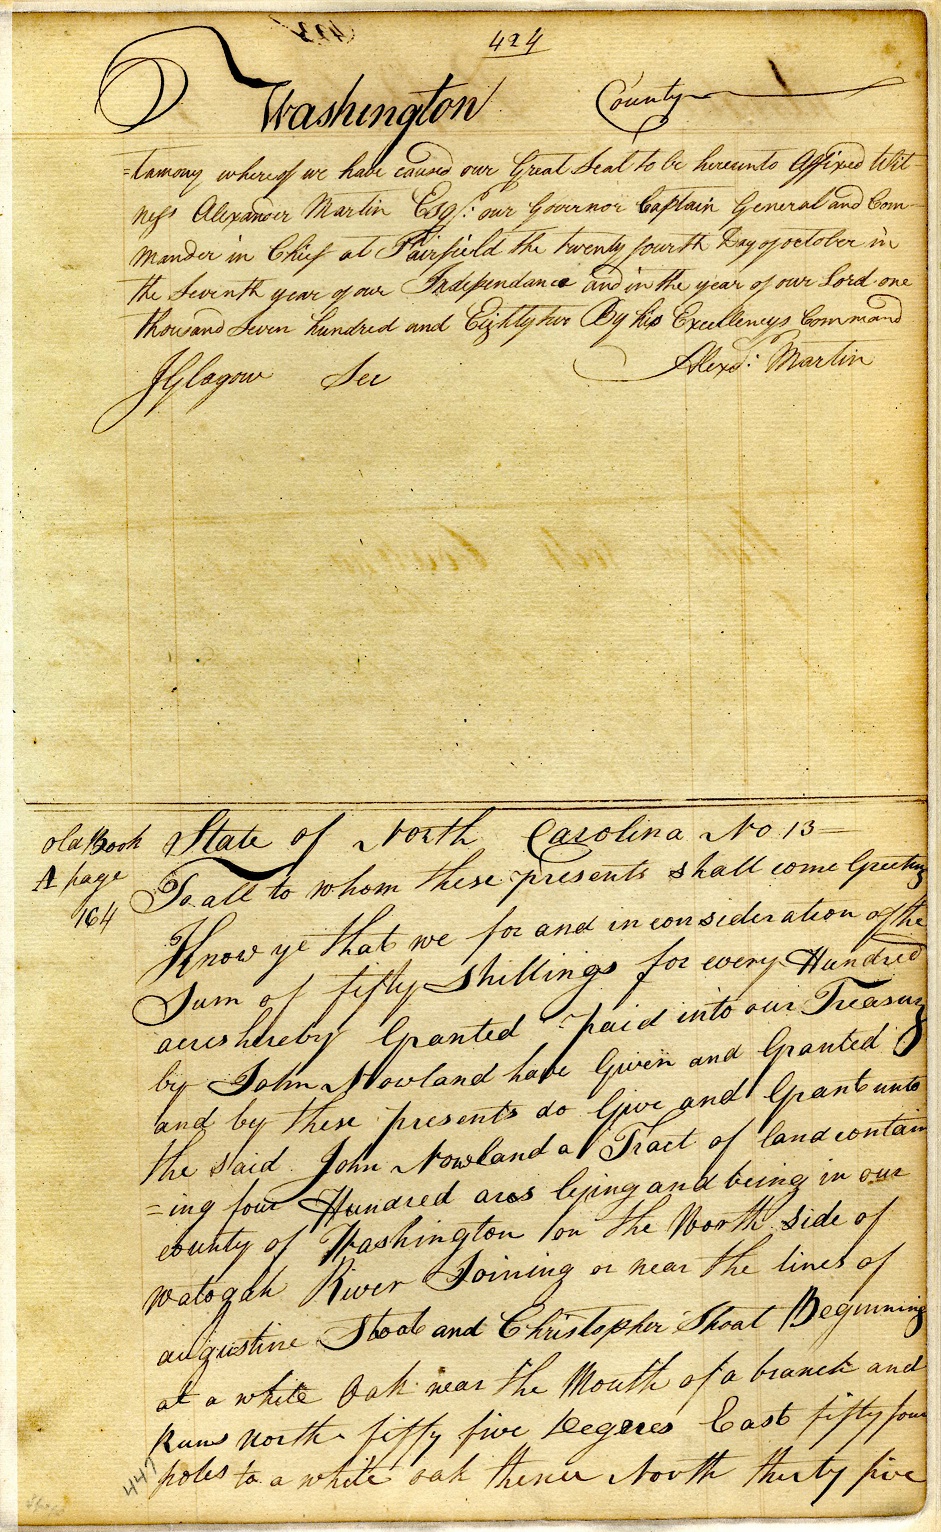 424
Washington County
=tamony whereof we have caused our Great Seal to be hereunto Affixed Wit
ness Alexander Martin Esqr. our Governor Captain General and Com-
mander in Chief at Fairfield the twenty fourth Day of october in
the Seventh year of our Independance and in the year of our Lord one
thousand Seven hundred and Eighty two By his Excellencys Command
JGlasgow Sec Alexd: Martin
old Book
A page
164
State of North Carolina No 13—
To all to whom these presents shall come Greeting
Know ye that we for and in consideration of the
Sum of fifty Shillings for every Hundred
acres hereby Granted paid into our Treasury
by John Nowland have Given and Granted
and by these presents do Give and Grant unto
the said John Nowland a Tract of land contain
=ing four Hundred acres lying and being in our
county of Washington on the North Side of
Watogah River Joining or near the lines of
augustine Shoat and Christopher Shoat Beginning
at a white Oak near the Mouth of a branch and
Runs North fifty five Degrees East fifty four
poles to a white oak thence North thirty five
447